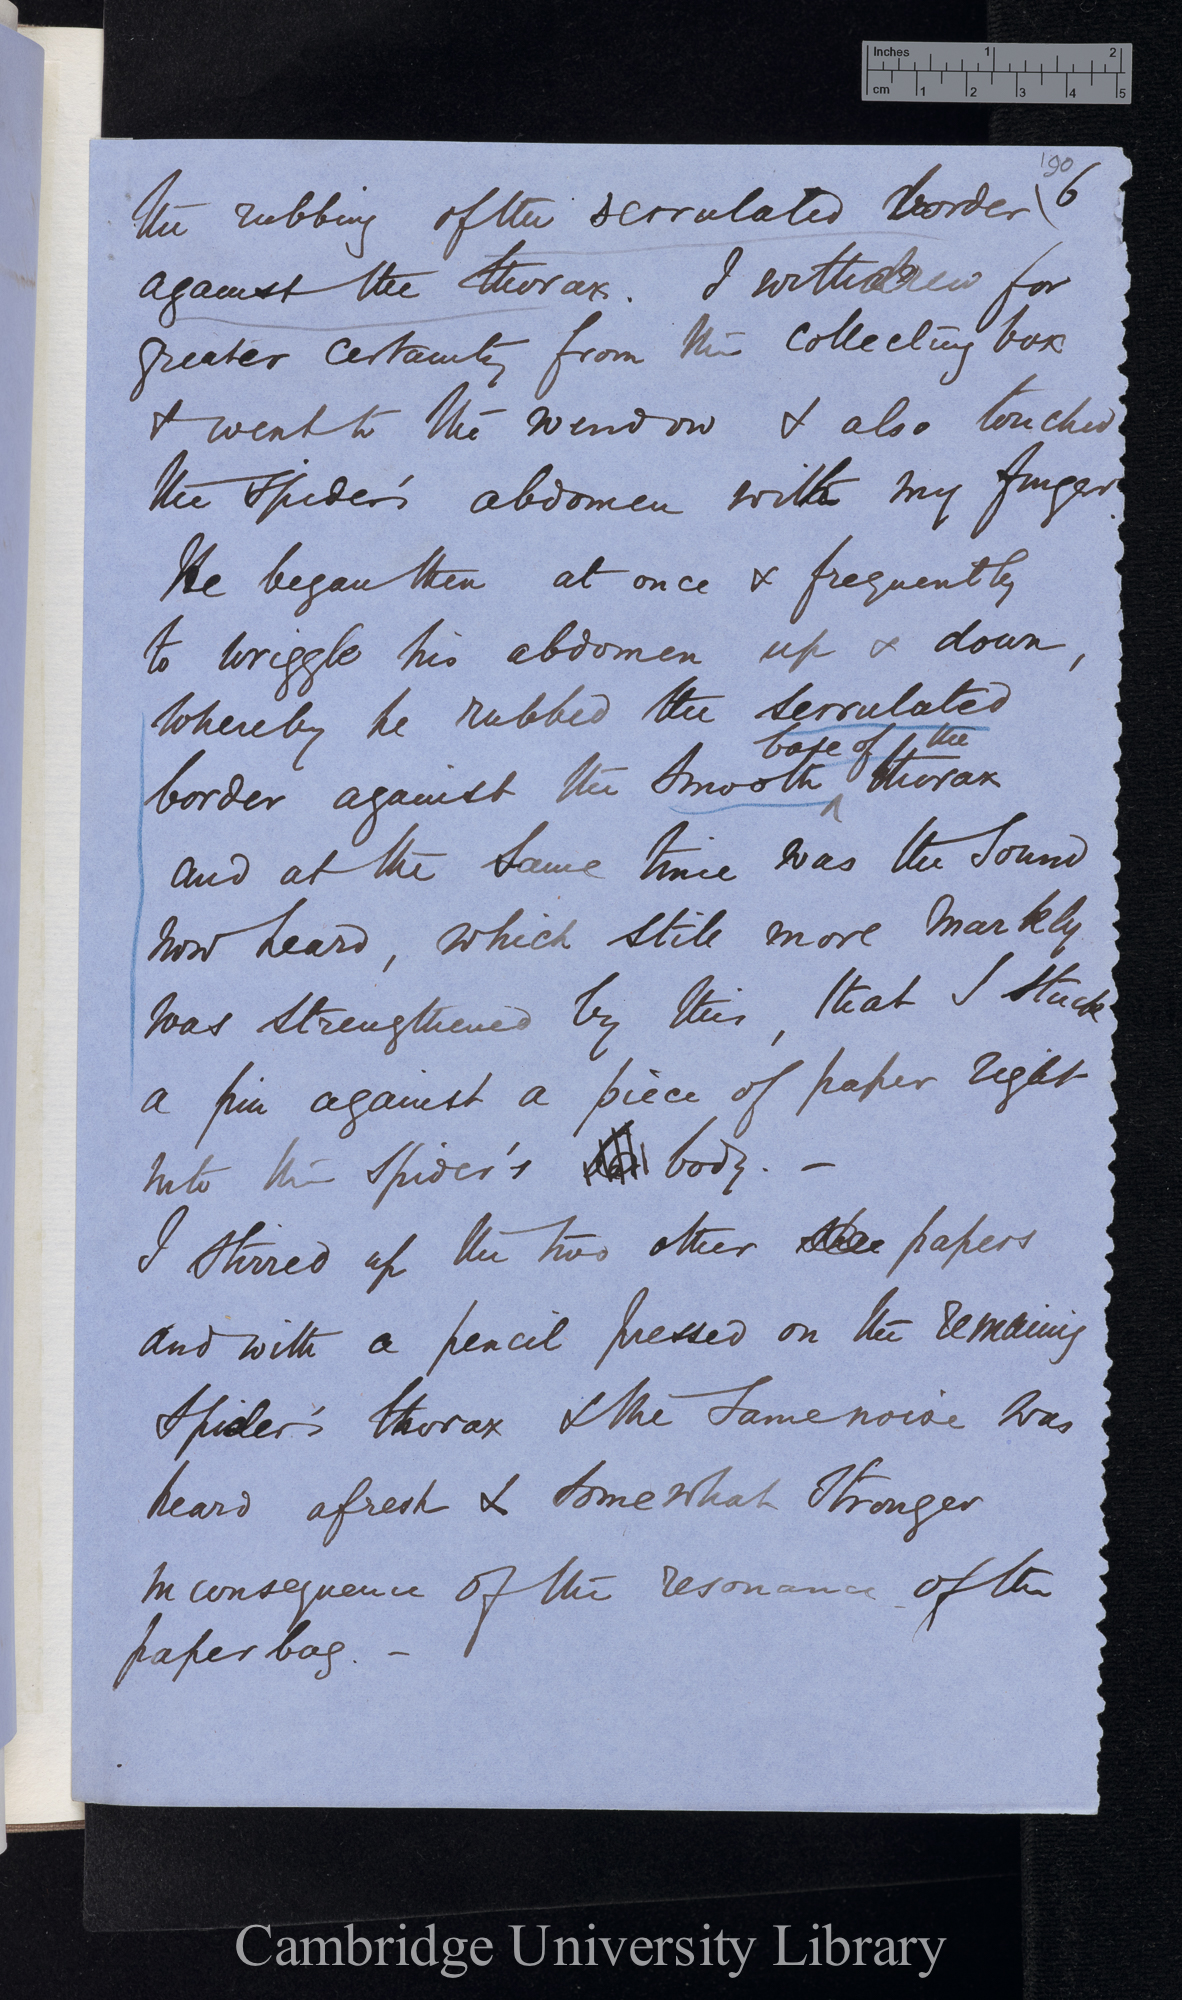 Inches 1 2
cm 1 2 3 4 5
190
6
the rubbing of the serrulated border
against the thorax. I withdrew for
greater certainty from the collecting box
& went to the window & also touched
the spider's abdomen with my finger.
He began then at once & frequently
to wriggle his abdomen up & down,
whereby he rubbed the serrulated
base of the
border against the smooth ^ thorax
and at the same time was the sound
now heard, which still more markly
was strengthened by this, that I stuck
a pin against a piece of paper right
into the spider's body. –
I stirred up the two other papers
and with a pencil pressed on the remaining
spider's thorax & the same noise was
heard afresh & somewhat stronger
in consequence of the resonance of the
paper bag. –
Cambridge University Library